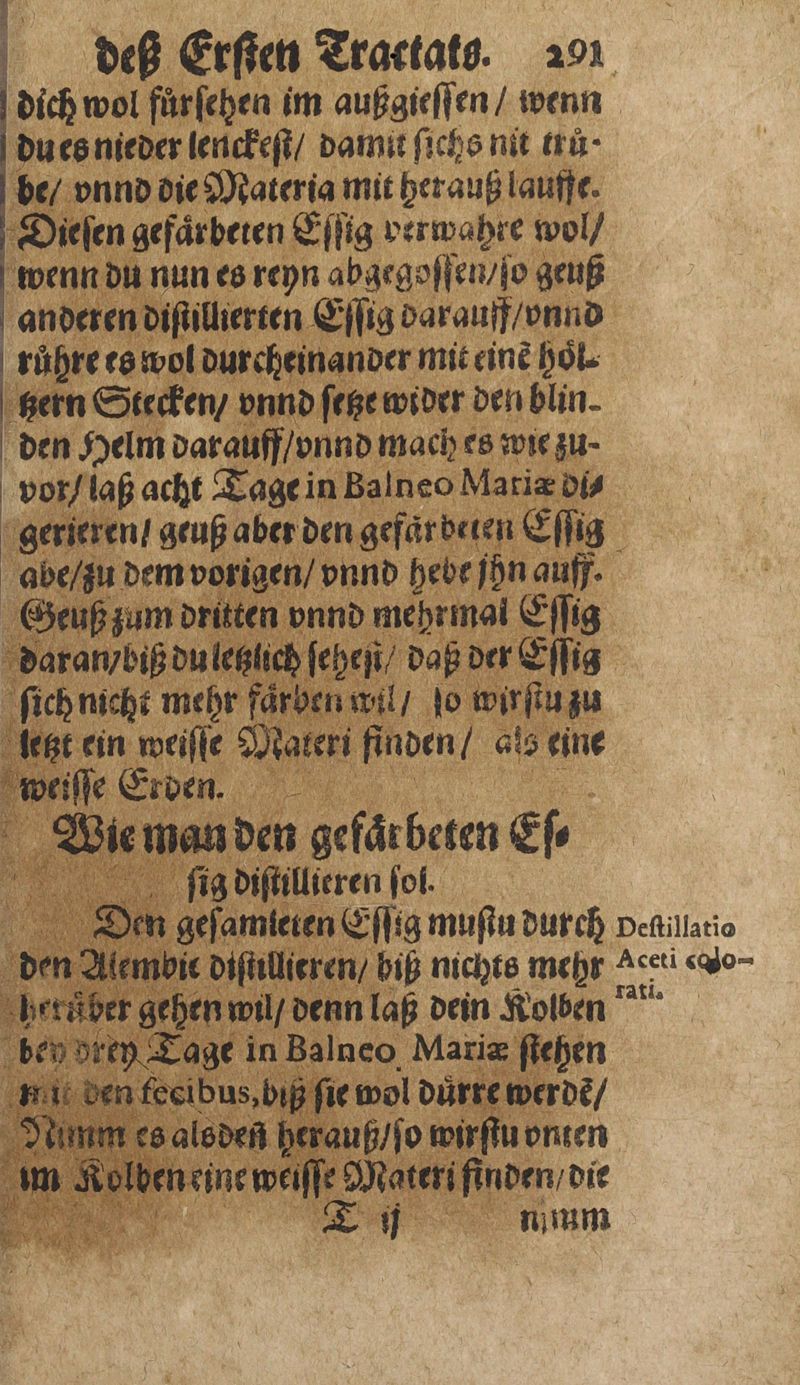 deß Ersten Tractats. 291
dich wol fürsehen im außgiessen / wenn
du es nieder lenckest / damit sichs nit trü-
be / vnnd die Materia mit herauß lauffe.
Diesen gefärbeten Essig verwahre wol /
wenn du nun es reyn abgegossen / so geuß
anderen distillierten Essig darauff / vnnd
rühre es wol durcheinander mit einē höl-
tzern Stecken / vnnd setze wider den blin-
den Helm darauff / vnnd mach es wie zu-
vor / laß acht Tage in Balneo Mariæ di-
gerieren / geuß aber den gefärbeten Essig
abe / zu dem vorigen / vnnd hebe jhn auff.
Geuß zum dritten vnnd mehrmal Essig
daran / biß du letzlich sehest / daß der Essig
sich nicht mehr färben wil / so wirstu zu
letzt ein weisse Materi finden / als eine
weisse Erden.
Wie man den gefärbeten Es-
sig distillieren sol.
Den gesamleten Essig mustu durch
den Alembic distillieren / biß nichts mehr
herüber gehen wil / denn laß dein Kolben
bey drey Tage in Balneo Mariæ stehen
mit den fecibus, biß sie wol dürre werdē /
Nimm es alsdeñ herauß / so wirstu vnten
im Kolben eine weisse Materi finden / die
T ij nimm
Destillatio
Aceti colo-
rati.